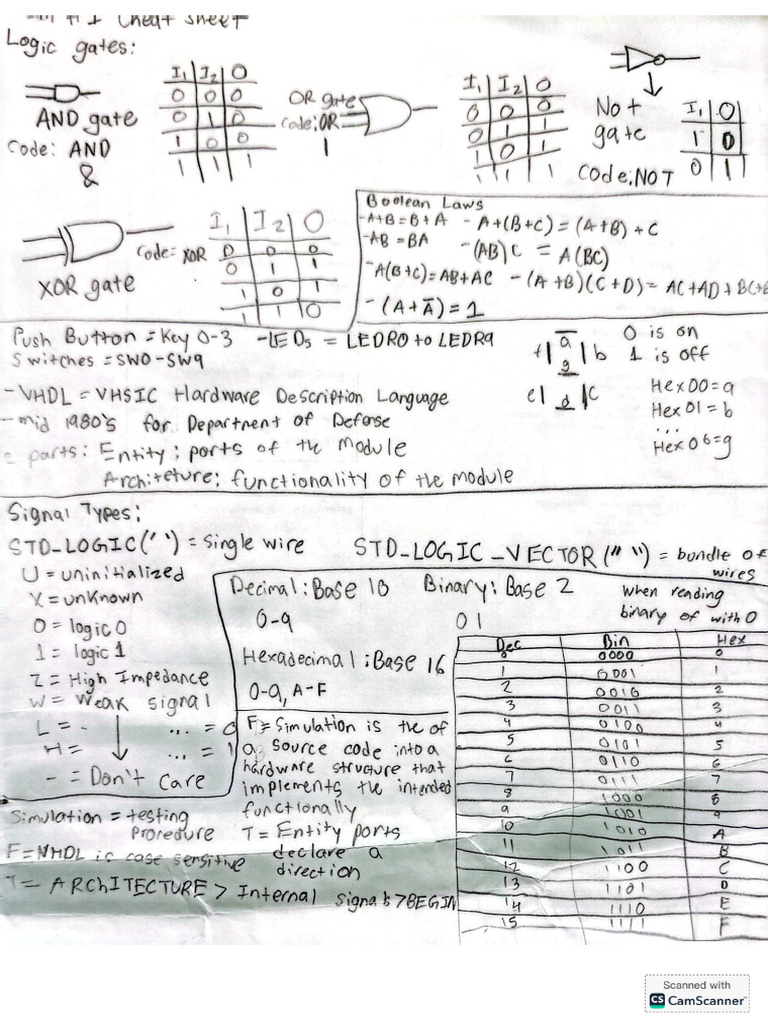 Cheat sheet
Logic gates:
AND gate
Code: AND
&
I₁ I₂ O
0 0 0
0 1 0
1 0 0
1 1 1
OR gate
code: OR
|
I₁ I₂ O
0 0 0
0 1 1
1 0 1
1 1 1
Not
gate
Code: NOT
I₁ O
1 0
0 1
XOR gate
Code = XOR
I₁ I₂ O
0 0 0
0 1 1
1 0 1
1 1 0
Boolean Laws
-A+B = B+A - A+(B+C) = (A+B)+C
-AB = BA -(AB)C = A(BC)
-A(B+C)=AB+AC -(A+B)(C+D)= AC+AD+BC+B
-(A+Ā)=1
Push Button = Key 0-3 -LEDs = LEDR0 to LEDR9
Switches = SW0-SW9
a
f g b
e d c
0 is on
1 is off
Hex00=a
Hex01=b
...
Hex06=g
-VHDL = VHSIC Hardware Description Language
-mid 1980's for Department of Defense
parts: Entity; ports of the Module
Architeture; functionality of the module
Signal Types:
STD_LOGIC(' ') = Single wire STD_LOGIC_VECTOR(" ") = bundle of
wires
U = uninitialized
X = unknown
0 = logic 0
1 = logic 1
Z = High Impedance
W = Weak signal
L = ... = 0
H = ... = 1
- = Don't Care
Decimal: Base 10 Binary: Base 2
0-9 01
Hexadecimal: Base 16
0-9, A-F
when reading
binary of with 0
Dec Bin Hex
0 0000 0
1 0001 1
2 0010 2
3 0011 3
4 0100 4
5 0101 5
6 0110 6
7 0111 7
8 1000 8
9 1001 9
10 1010 A
11 1011 B
12 1100 C
13 1101 D
14 1110 E
15 1111 F
F = Simulation is the of
a source code into a
hardware structure that
implements the intended
functionally
T = Entity ports
declare a
direction
Simulation = testing
Procedure
F = VHDL is case sensitive
T = ARCHITECTURE > Internal Signals > BEGIN
Scanned with
CS CamScanner